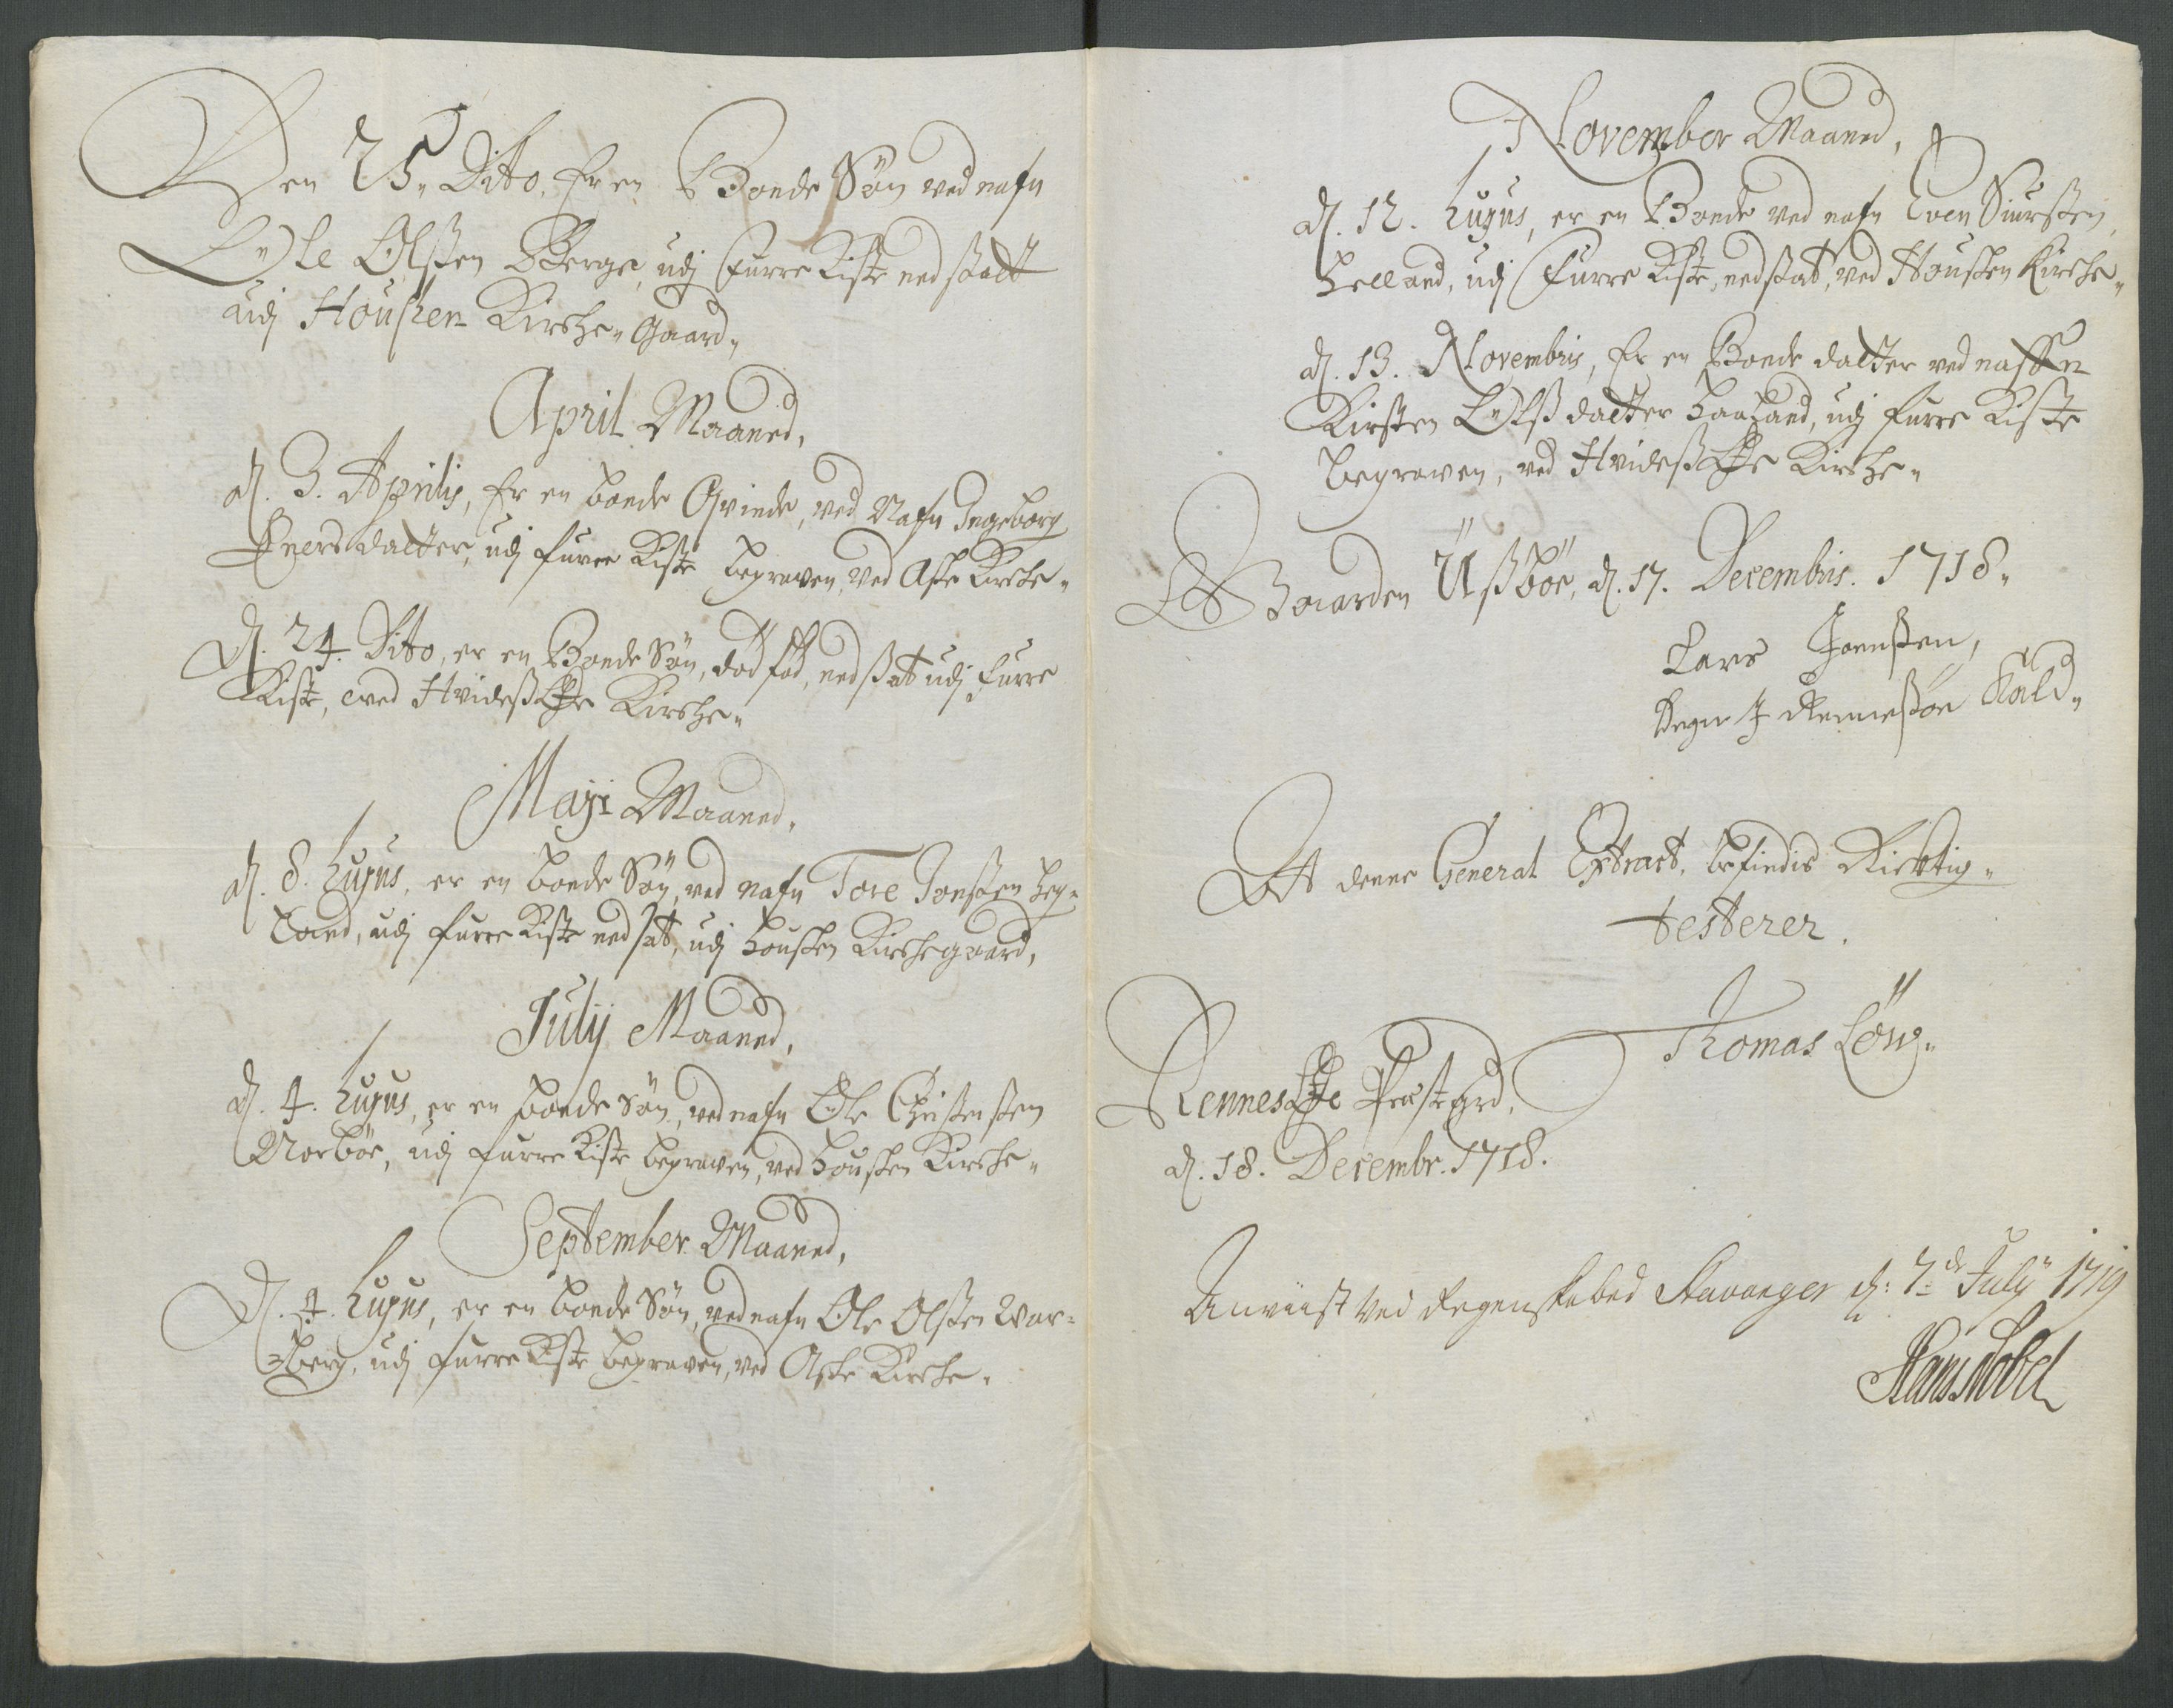 Den 25. Dito, Er en Bonde Søn ved nafn
Ole Olssen Berge, udj Furre Kiste nedsatt
udj Housken Kirche Gaard„
April Maaned,
d. 3. Aprilis, Er en bonde Qvinde, ved Nafn Ingeborg
daatter, udj furre Kiste begraven, ved Aske Kirche„
D. 24. Dito, er en Bonde Søn, død fød, nedsat udj furre
Kiste, ved Hvidesøe Kirche„
Maji Maaned,
d. 8. hujus, er en bonde Søn, ved nafn Tore Jonssen Heg„
land, udj furre Kiste nedsat, udj Housken Kirchegaard,
Julij Maaned,
d. 4. hujus, er en bonde Søn, ved nafn Ole Christenssen
Norbøe, udj furre Kiste begraven, ved Housken Kirche„
September Maaned,
D. 4. hujus, er en bonde Søn, ved nafn Ole Olssen War=
=berg, udj furre Kiste begraven, ved Aske Kirche„
November Maaned,
d. 12. hujus, er en Bonde ved nafn Even Siurssen
Helland, udj Furre Kiste, nedsat, ved Housken Kirche„
d. 13. Novembris, Er en Bonde daatter ved naffn
Kirsten Olss daatter Haaland, udj furre Kiste
begraven, ved Hvidesøe Kirche„
Gaarden Üssbøe, d. 17. Decembris. 1718„
Lars Joenssen,
Degn I Rennessøe Kald„
At denne General Extract, befindis Ricktig„
testerer.
Thomas Löw„
Rennesøe Præstegrd,
d. 18. Decembr. 1718.
Anviist Ved Regenskabed Stavanger d: 7de July 1719
Hans Nobel